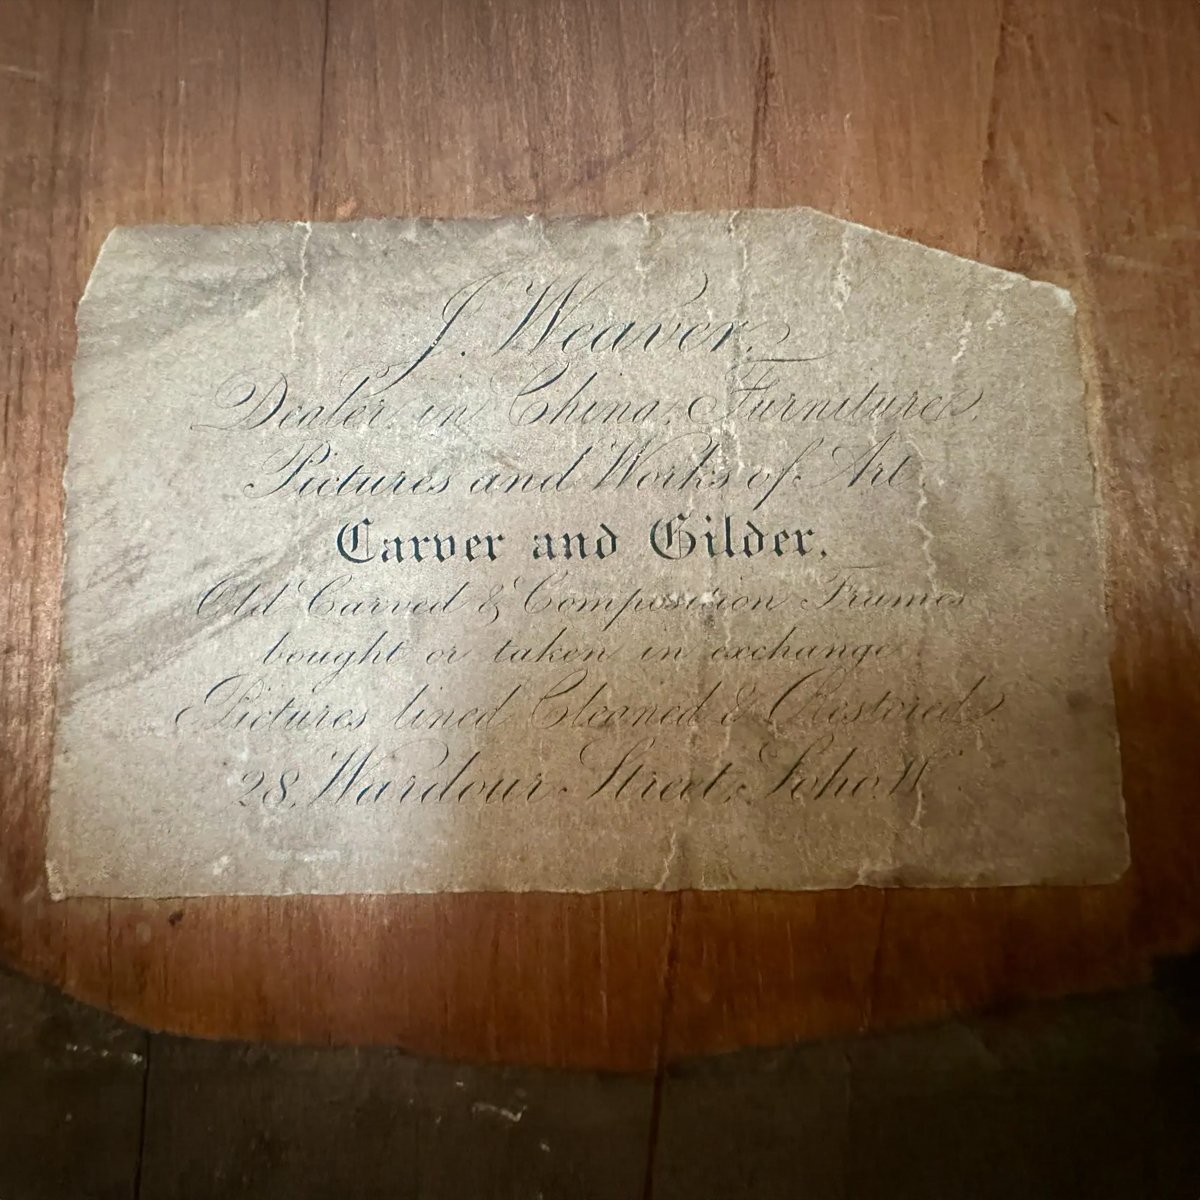 J. Weaver.
Dealer in China, Furniture,
Pictures and Works of Art.
Carver and Gilder.
Old Carved & Composition Frames
bought or taken in exchange
Pictures lined, Cleaned & Restored,
28, Wardour Street, Soho. W.